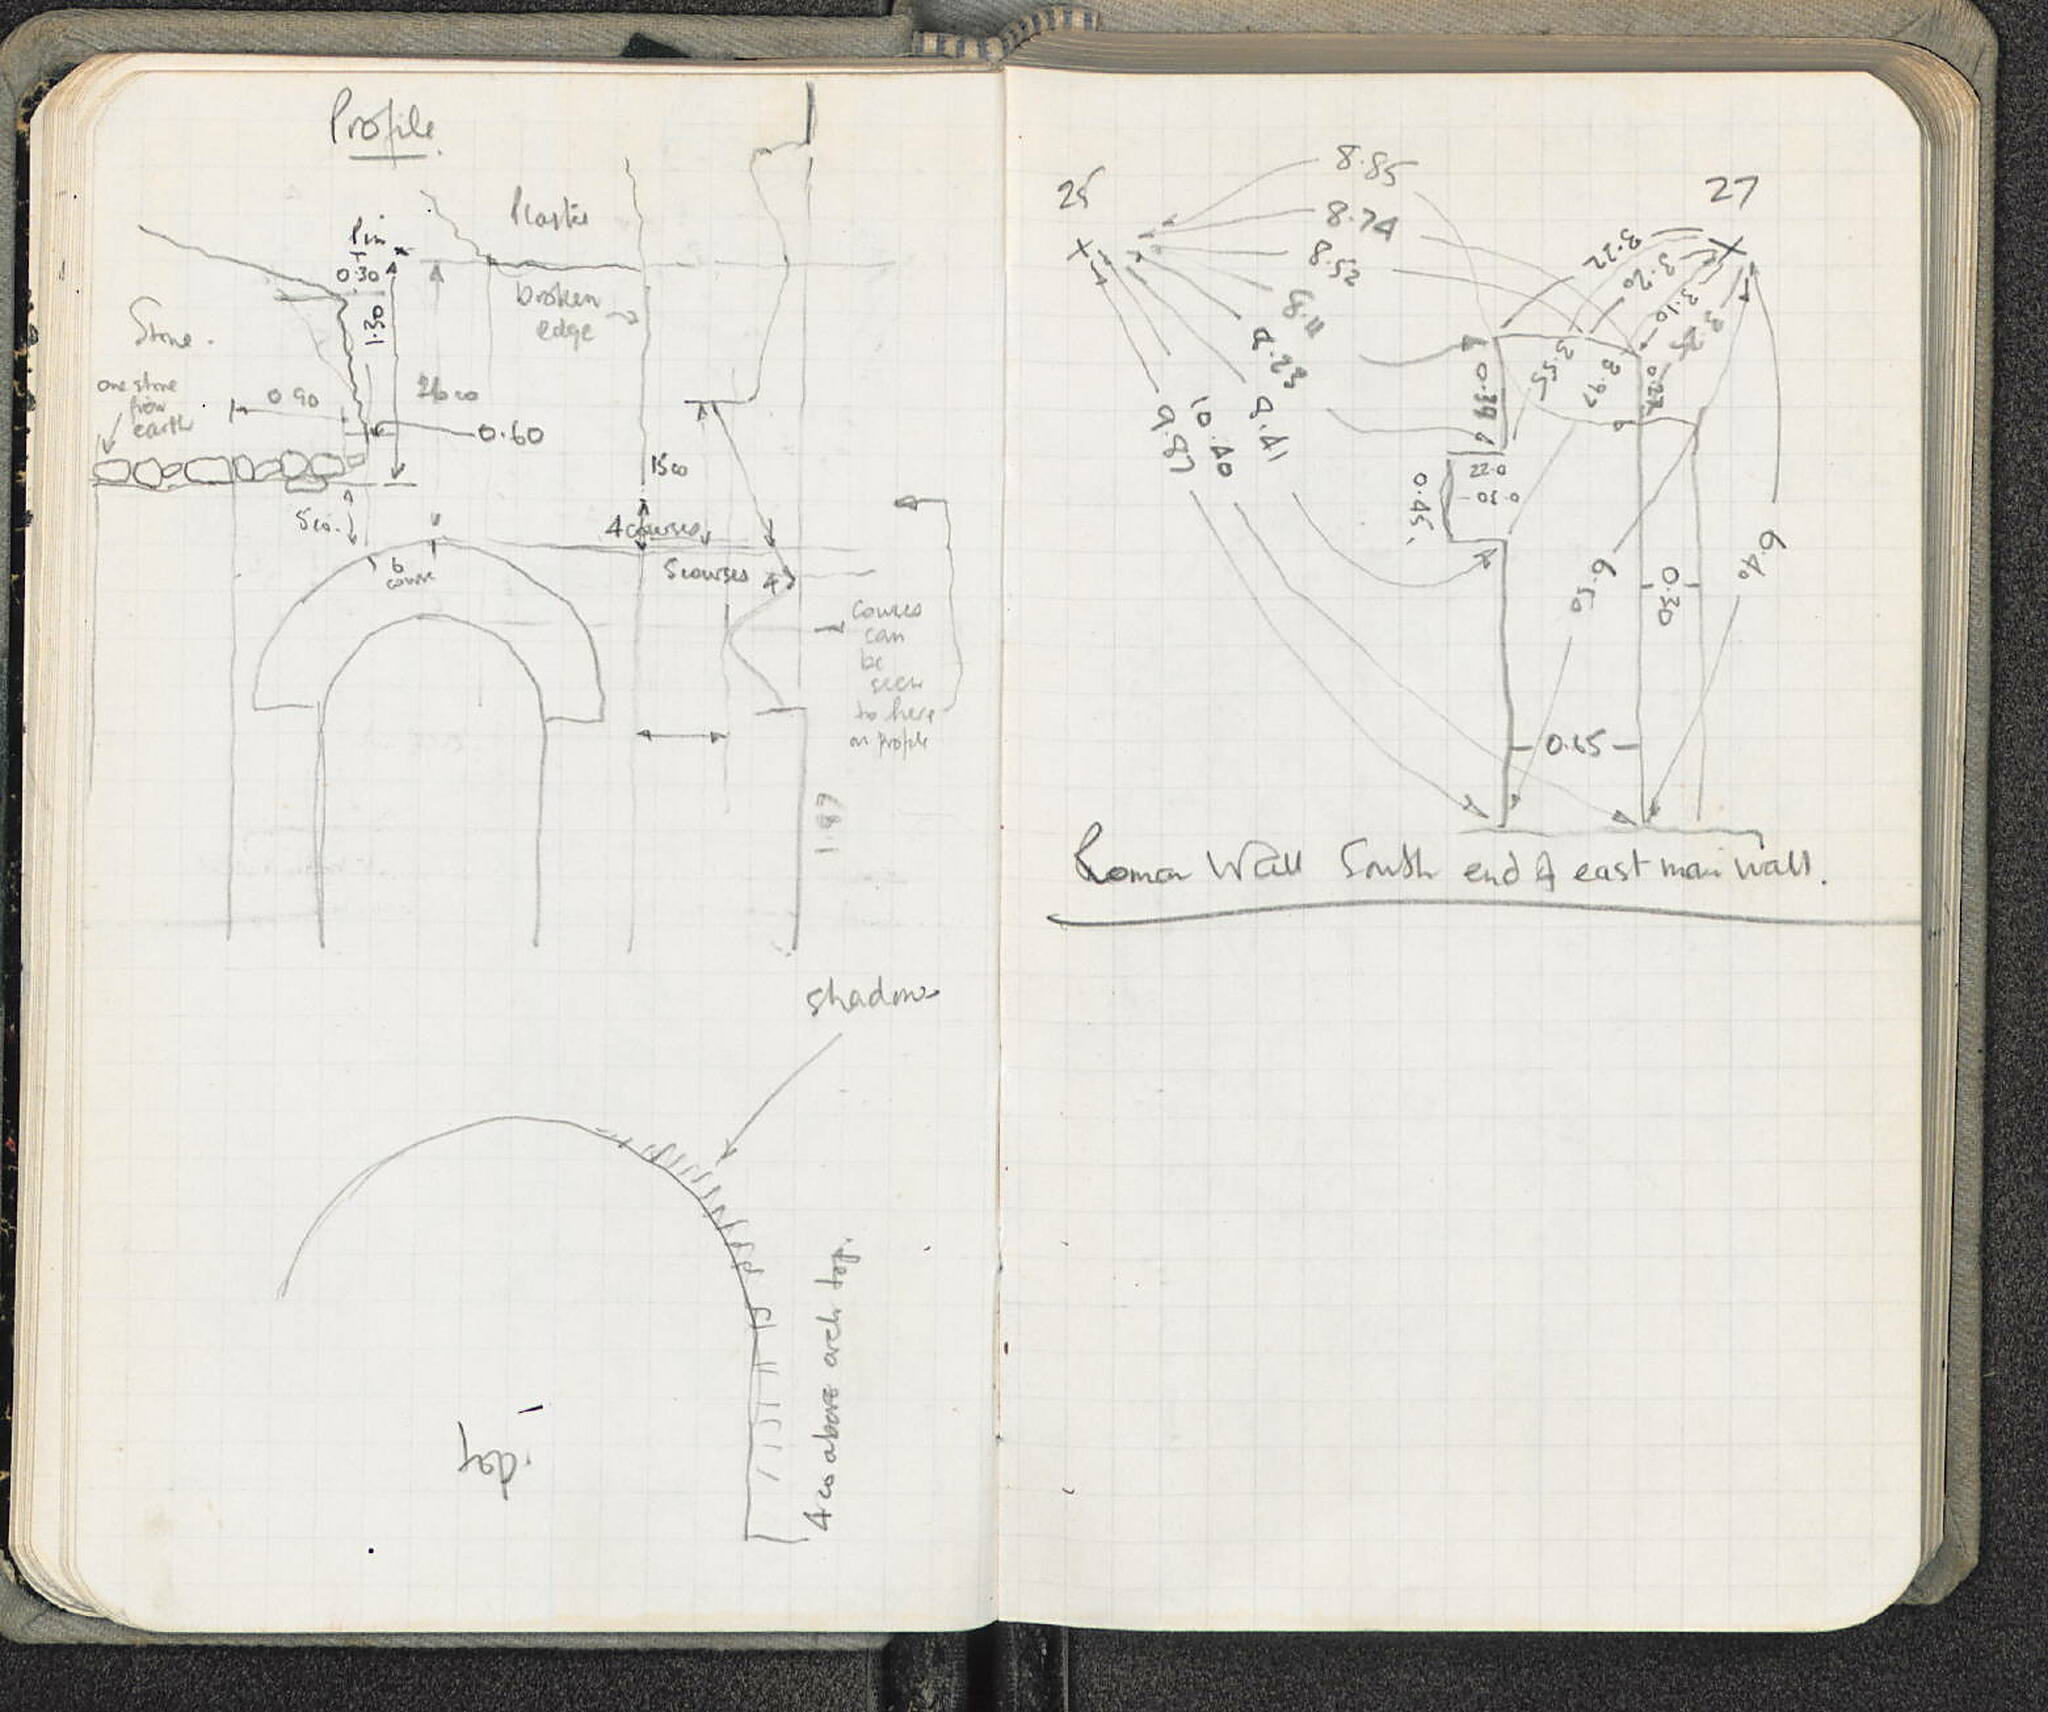 Profile
Plaster
Pin
0.30
1.30
broken
edge
Stone.
one stone
from
earth
0.90
26 co
0.60
15 co
5 co.
4 courses
6
course
5 courses
4
Courses
can
be
seen
to here
on profile
1.97
shadow
4 co above arch top.
25
27
8.85
8.74
8.52
8.11
9.23
9.41
10.40
9.87
3.22
3.20
3.10
3.25
3.55
3.97
0.39
0.27
0.22
0.30
0.45
6.50
0.30
6.40
0.65
Roman Wall South end of east main wall.